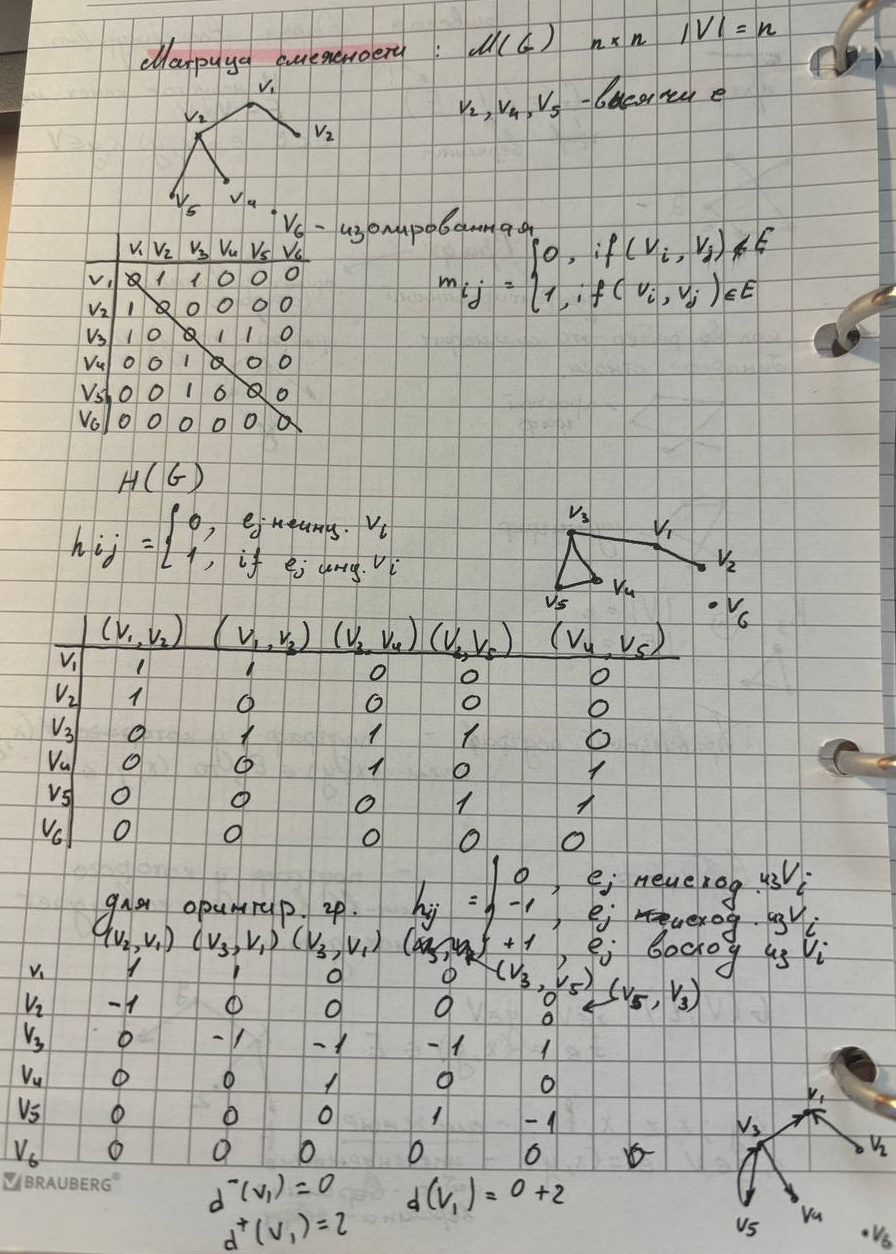 Матрица смежности : M(G) n×n |V| = n
V₁
V₂ V₂
V₂, V₄, V₅ - висячие
V₅ V₄
V₆ - изолированная
V₁ V₂ V₃ V₄ V₅ V₆
V₁ 0 1 1 0 0 0
V₂ 1 0 0 0 0 0
V₃ 1 0 0 1 1 0
V₄ 0 0 1 0 0 0
V₅ 0 0 1 0 0 0
V₆ 0 0 0 0 0 0
mij = { 0, if (Vi, Vj) ∉ E
1, if (Vi, Vj) ∈ E
H(G)
hij = { 0, ej неинц. Vi
1, if ej инц. Vi
V₃ V₁
V₂
V₅ V₄
V₆
(V₁, V₂) (V₁, V₂) (V₃, V₄) (V₃, V₅) (V₄, V₅)
V₁ 1 1 0 0 0
V₂ 1 0 0 0 0
V₃ 0 1 1 1 0
V₄ 0 0 1 0 1
V₅ 0 0 0 1 1
V₆ 0 0 0 0 0
для оринтир. гр. hij = { 0, ej неисход из Vi
-1, ej исход. из Vi
+1, ej восход из Vi
(V₂, V₁) (V₃, V₁) (V₃, V₁) (V₃, V₅) (V₅, V₃)
V₁ 1 1 0 0 0
V₂ -1 0 0 0 0
V₃ 0 -1 -1 -1 1
V₄ 0 0 1 0 0
V₅ 0 0 0 1 -1
V₆ 0 0 0 0 0 0
V₁
V₃ V₂
V₅ V₄
V₆
BRAUBERG®
d⁻(V₁) = 0 d(V₁) = 0 + 2
d⁺(V₁) = 2